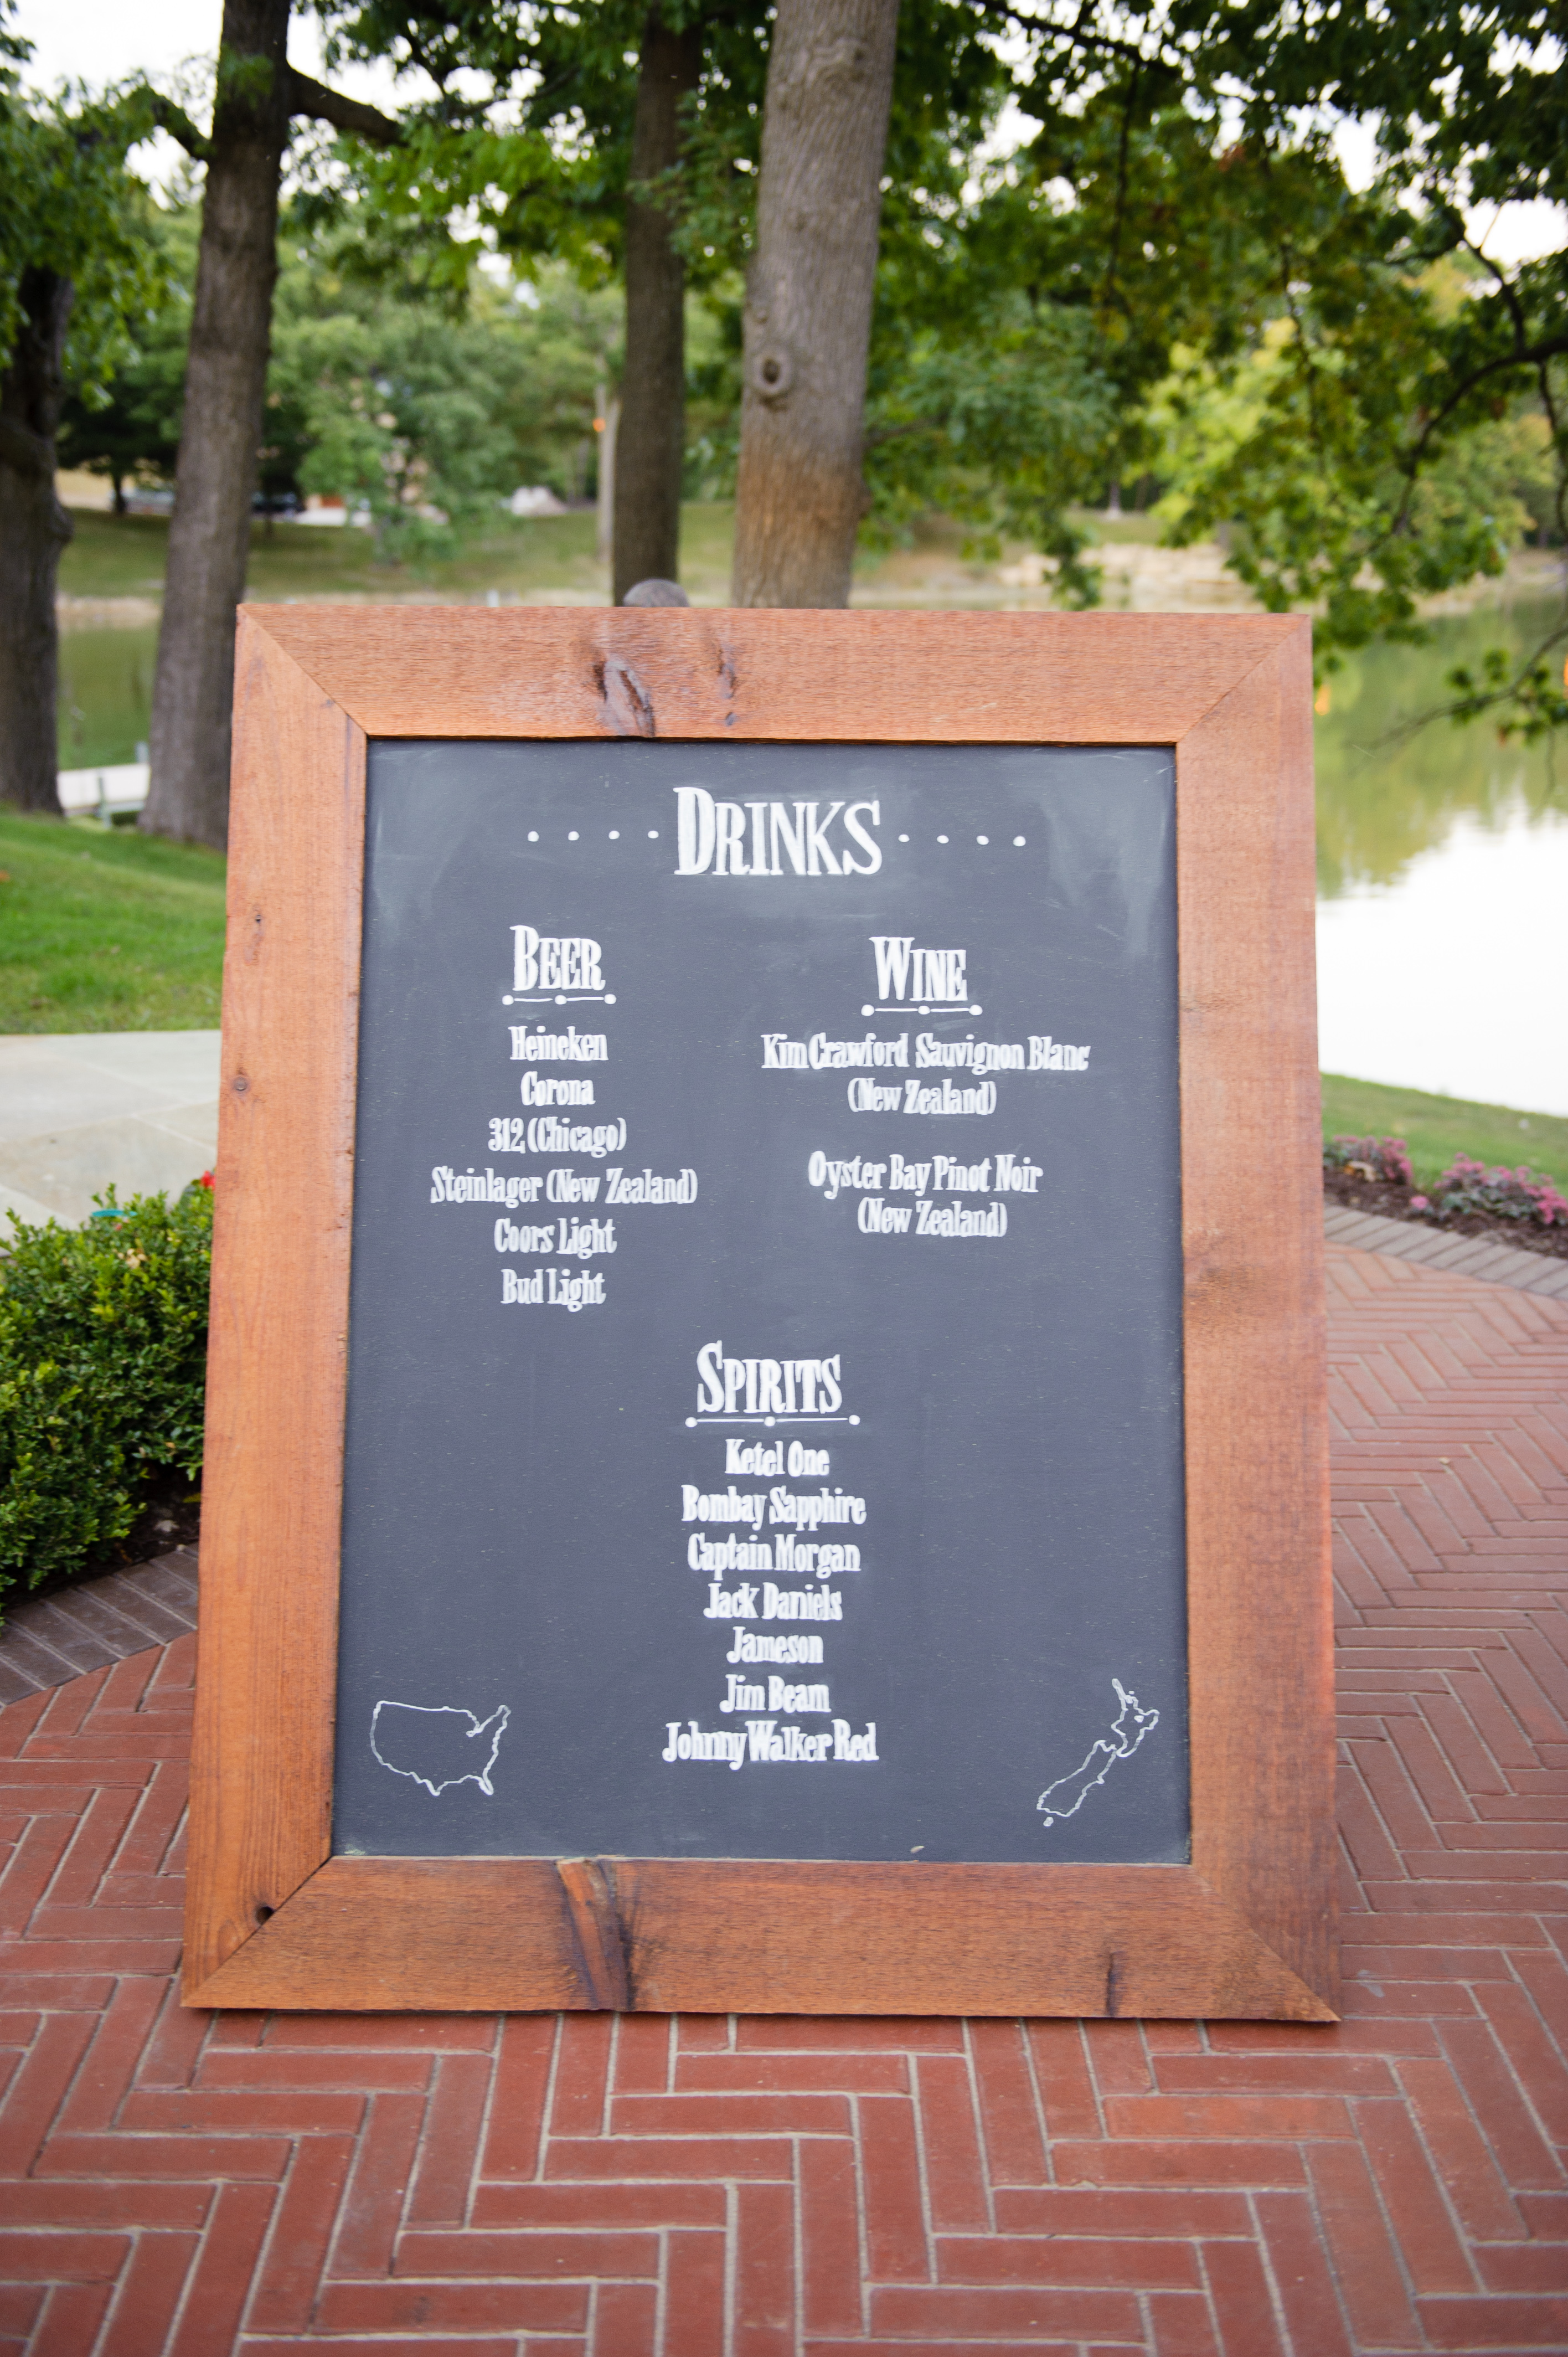 DRINKS
BEER
Heineken
Corona
312 (Chicago)
Steinlager (New Zealand)
Coors Light
Bud Light
WINE
Kim Crawford Sauvignon Blanc
(New Zealand)
Oyster Bay Pinot Noir
(New Zealand)
SPIRITS
Ketel One
Bombay Sapphire
Captain Morgan
Jack Daniels
Jameson
Jim Beam
Johnny Walker Red